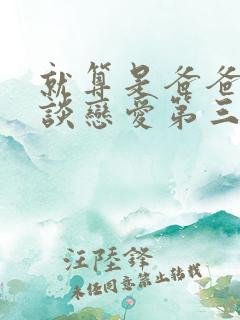 就算是爸爸
談戀愛第三
汪陸鋒
未經同意禁止轉載